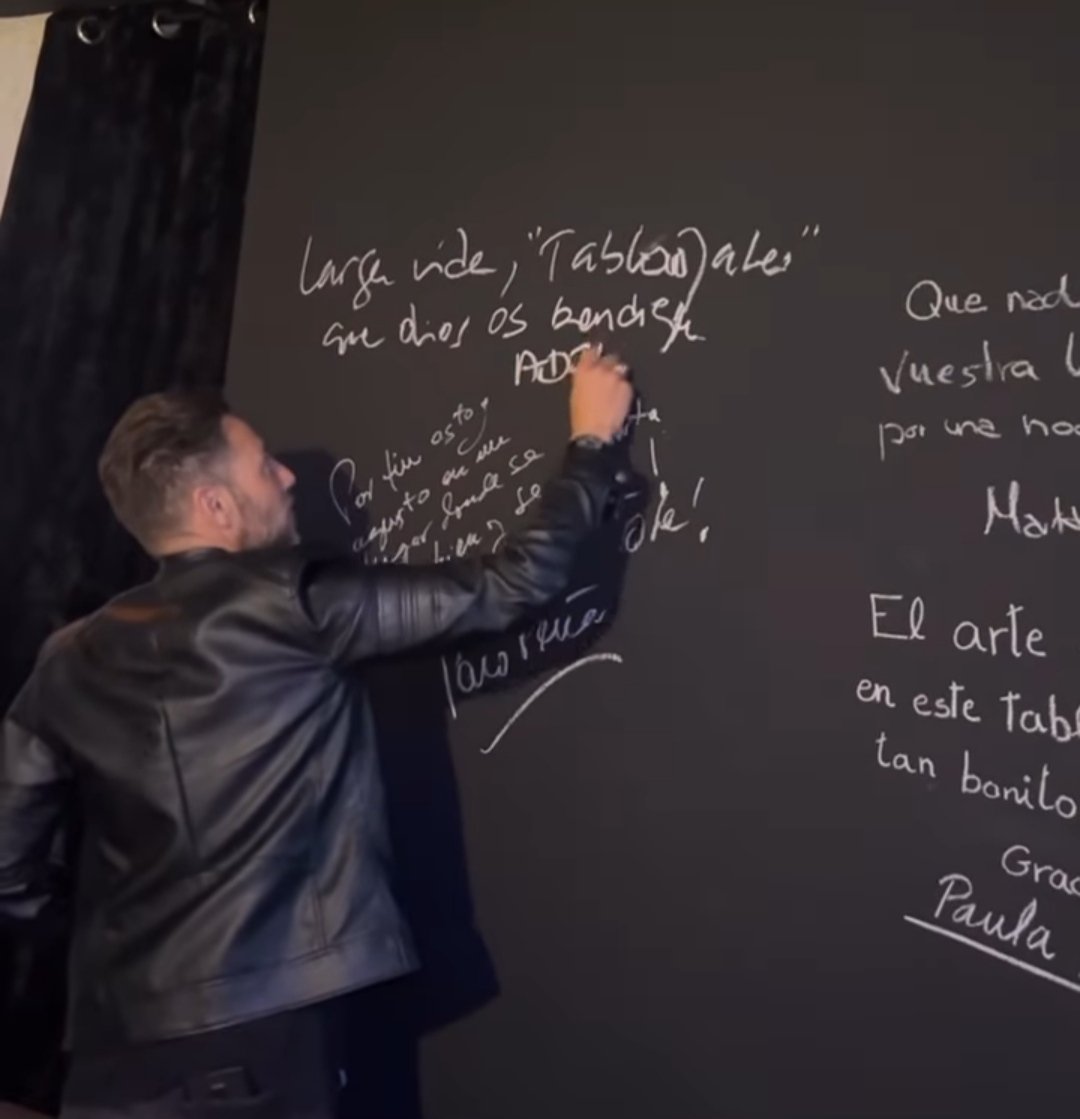 Larga vida, "Tablao Jaleo"
que dios os bendiga
Por fin estoy
agusto en un
lugar donde se
bien y se
Ole!
Paco Peña
Que nad
vuestra l
por una noc
El arte
en este tabl
tan bonito
Grac
Paula